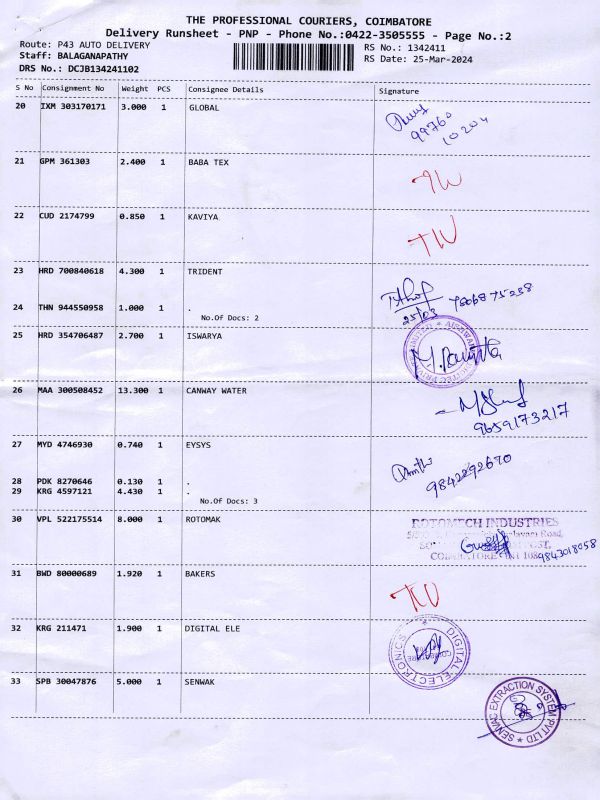 THE PROFESSIONAL COURIERS, COIMBATORE
Delivery Runsheet - PNP - Phone No.:0422-3505555 - Page No.:2
Route: P43 AUTO DELIVERY RS No.: 1342411
Staff: BALAGANAPATHY RS Date: 25-Mar-2024
DRS No.: DCJB134241102
S No Consignment No Weight PCS Consignee Details Signature
20 IXM 303170171 3.000 1 GLOBAL
99760
10204
21 GPM 361303 2.400 1 BABA TEX
22 CUD 2174799 0.850 1 KAVIYA
23 HRD 700840618 4.300 1 TRIDENT
24 THN 944550958 1.000 1 .
No.Of Docs: 2
25/03
25 HRD 354706487 2.700 1 ISWARYA
26 MAA 300508452 13.300 1 CANWAY WATER
9659173217
27 MYD 4746930 0.740 1 EYSYS
9842292670
28 PDK 8270646 0.130 1 .
29 KRG 4597121 4.430 1 .
No.Of Docs: 3
30 VPL 522175514 8.000 1 ROTOMAK
ROTOMECH INDUSTRIES
9843018058
31 BWD 80000689 1.920 1 BAKERS
32 KRG 211471 1.900 1 DIGITAL ELE
DIGITAL ELECTRONICS
33 SPB 30047876 5.000 1 SENWAK
EXTRACTION SYSTEM PVT LTD